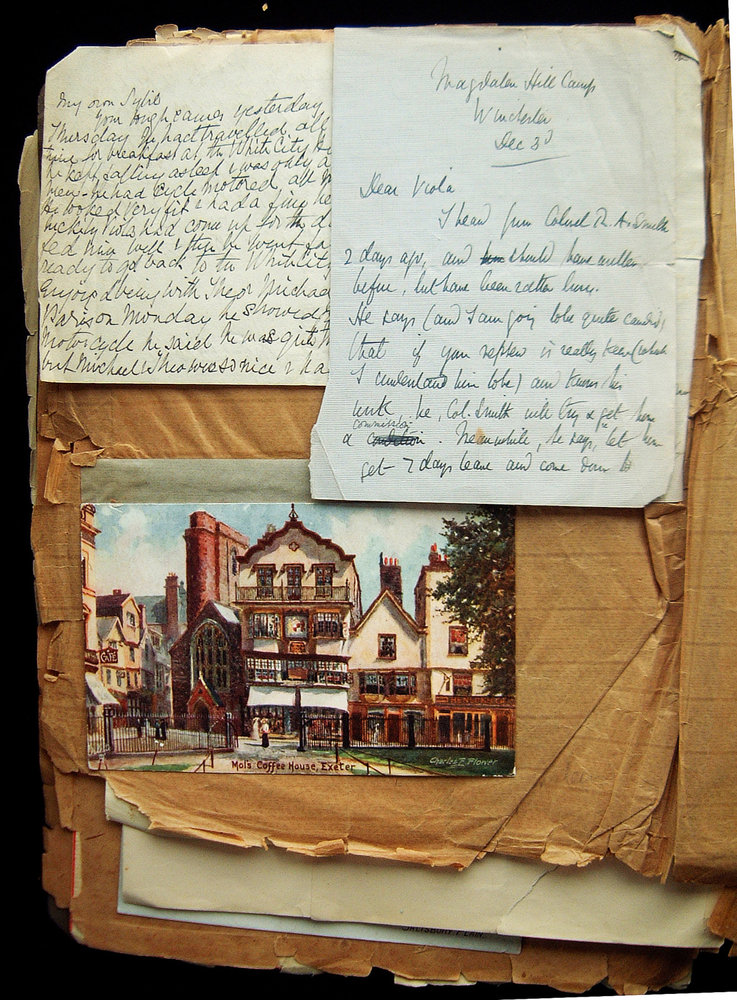 My own Sylvie
Your Hugh came yesterday
Thursday. He had travelled all
time for breakfast at the White City
he kept falling asleep & was only a
men he had cycle motored, all
He looked very fit & had a fine
had come up for the d
fed him well & then he went
ready to go back to the White City
enjoyed being with Michael
Paris on Monday he showed
Motorcycle he said he was quite
but Michael who was so nice & ha
Magdalen Hill Camp
Winchester
Dec 3d
Dear Viola
I heard from Colonel R. A. Smith
2 days ago, and should have written
before, but have been rather busy.
He says (and I am going to be quite candid)
that if your nephew is really keen (which
I understand him to be) and knows his
work, he, Col. Smith will try & get him
a commission. Meanwhile, he says, let him
get 7 days leave and come down to
CAFE
Mol's Coffee House, Exeter
Charles F. Flower
SALISBURY PLAIN.